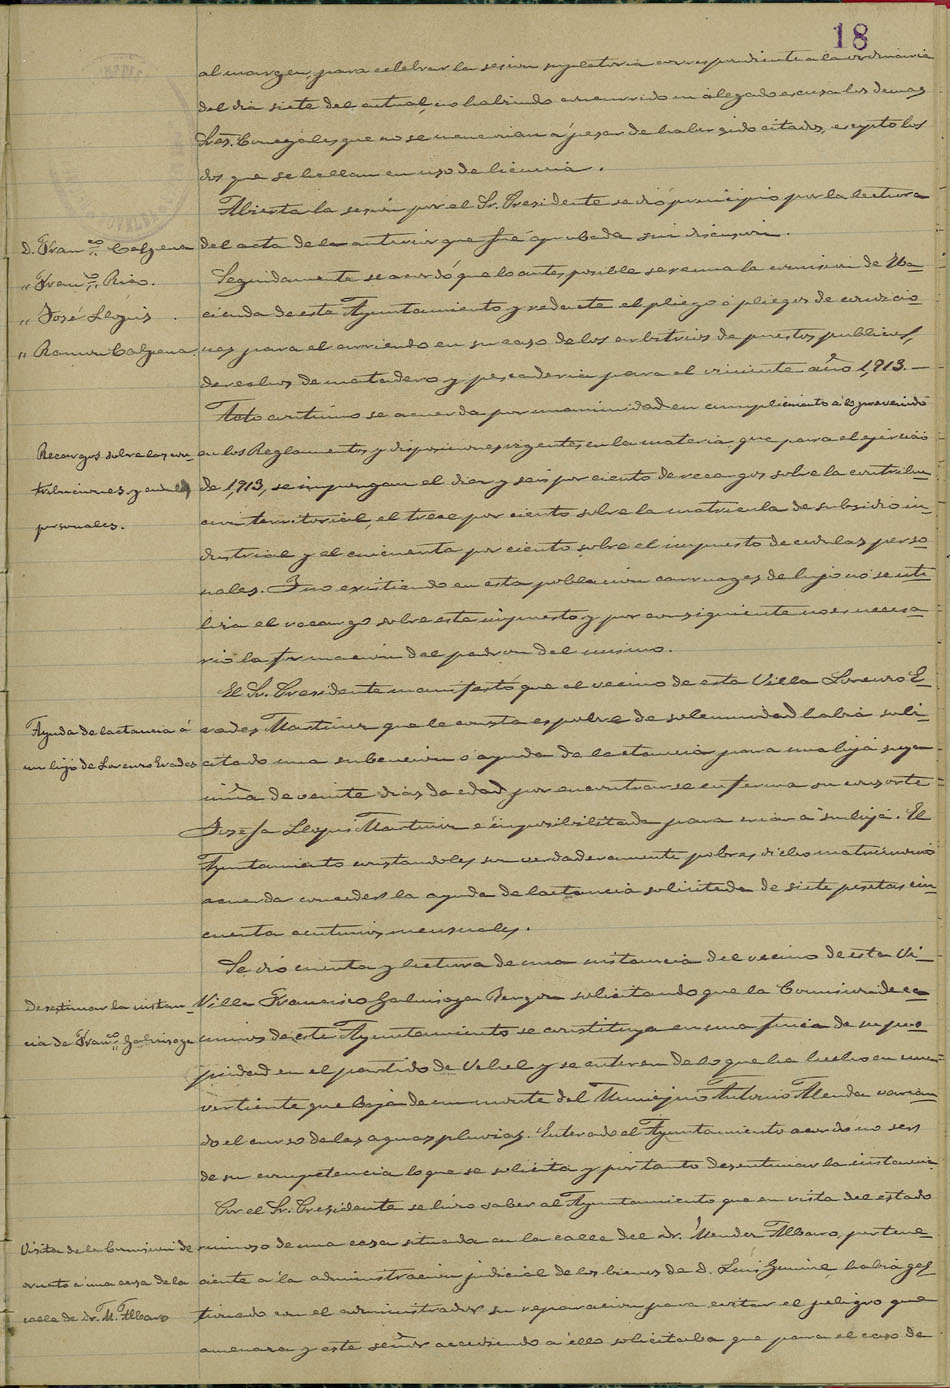 18
al margen, para celebrar la sesion supletoria correspondiente a la ordinaria
del dia siete del actual, no habiendo concurrido ni alegado escusa los demas
Sres. Concejales que no se mencionan á pesar de haber sido citados, escepto los
dos que se hallan en uso de licencia.
Abierta la sesión por el Sr. Presidente se dió principio por la lectura
D. Franco. Calpena
del acta de la anterior que fué aprobada sin discusion.
" Franco. Rico.
Seguidamente se acordó que lo antes posible se reuna la comision de Ha-
" José Llopis.
cienda de este Ayuntamiento y redacte el pliego ó pliegos de condicio-
" Ramon Calpena.
nes para el arriendo en su caso de los arbitrios de puestos publicos,
derechos de matadero y pescaderia para el viniente año 1,913.—
Acto continuo se acuerda por unanimidad en cumplimiento á lo prevenido
Recargos sobre las con-
en los Reglamentos y disposiciones vigentes en la materia, que para el ejercicio
tribuciones y cedulas
de 1,913, se impongan el diez y seis por ciento de recargos sobre la contribu-
personales.
cion territorial, el trece por ciento sobre la matricula de subsidio in-
dustrial y el cincuenta por ciento sobre el impuesto de cedulas perso-
nales. Y no existiendo en esta poblacion carruages de lujo no se uti-
liza el recargo sobre este impuesto y por consiguiente no es necesa-
rio la formacion del padron del mismo.
El Sr. Presidente manifestó que el vecino de esta Villa Lorenzo E-
Ayuda de lactancia á
vades Martinez que le consta es pobre de solemnidad habia soli-
un hijo de Lorenzo Evades
citado una subencion ó ayuda de lactancia para una hija suya
niña de veinte dias de edad por encontrarse enferma su consorte
Josefa Llopis Martinez e imposibilitada para criar á su hija. El
Ayuntamiento constandoles ser verdaderamente pobres dicho matrimonio
acuerda concederle la ayuda de lactancia solicitada de siete pesetas cin-
cuenta centimos mensuales.
Se dió cuenta y lectura de una instancia del vecino de esta Vi-
Desestimar la instan-
Villa Francisco Galinsoga solicitando que la Comision de ca-
cia de Franco. Galinsoga
minos de este Ayuntamiento se constituya en una finca de su pro-
piedad en el partido de y se enteren de lo que ha hecho en una
vertiente que baja de un monte del Municipio Antonio varian-
do el curso de las aguas pluvias. Enterado el Ayuntamiento acordó no ser
de su competencia lo que se solicita y por tanto desestimar la instancia.
Por el Sr. Presidente se hizo saber al Ayuntamiento que en vista del estado
Visita de la Comision de
ruinoso de una casa situada en la calle del Dr. Mender Albaro, pertene-
ornato á una casa de la
ciente á la administracion judicial de los bienes de D. Luis habia ges-
calle de Dr. M. Albaro
tionado con el administrador su reparacion para evitar el peligro que
amenaza y este señor accediendo á ello solicitaba que para el caso de